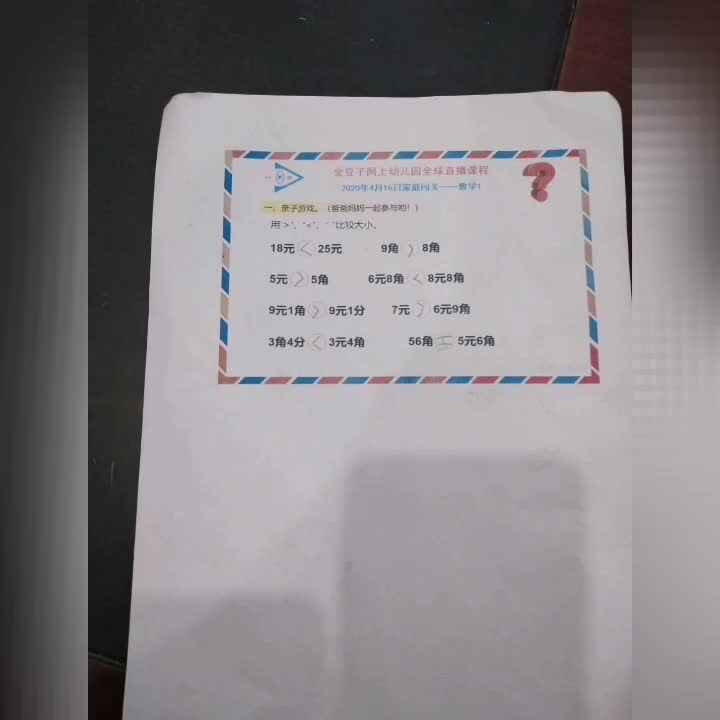 金豆子网上幼儿园全球直播课程
2020年4月16日家庭闯关——数学1
一、亲子游戏。（爸爸妈妈一起参与哟！）
用“>”、“<”、“=”比较大小。
18元 < 25元 9角 > 8角
5元 > 5角 6元8角 < 8元8角
9元1角 > 9元1分 7元 > 6元9角
3角4分 < 3元4角 56角 = 5元6角